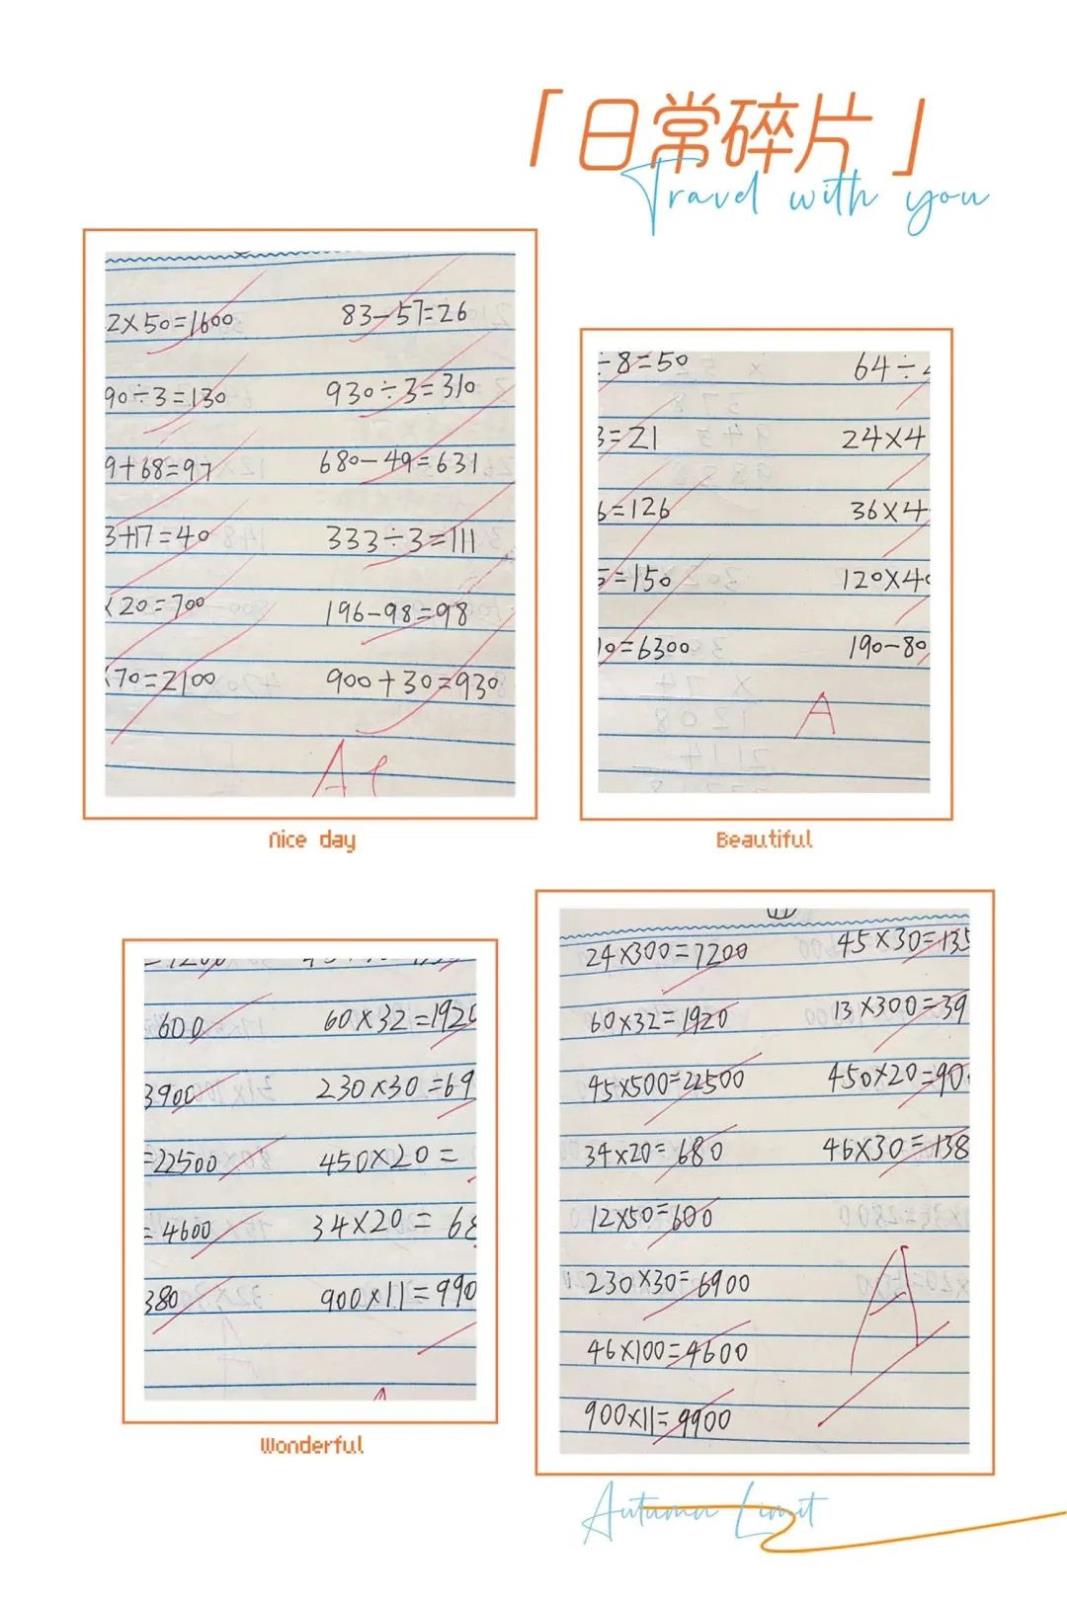 「日常碎片」
Travel with you
2×50=1600 83-57=26
90÷3=130 930÷3=310
9+68=97 680-49=631
3+17=40 333÷3=111
×20=700 196-98=98
×70=2100 900+30=930
A
Nice day
÷8=50 64÷
3=21 24×4
6=126 36×4
5=150 120×40
10=6300 190-80
A
Beautiful
=1200
600 60×32=1920
3900 230×30=69
=22500 450×20=
=4600 34×20=68
380 900×11=990
Wonderful
24×300=7200 45×30=135
60×32=1920 13×300=39
45×500=22500 450×20=90
34×20=680 46×30=138
12×50=600
230×30=6900
46×100=4600
900×11=9900
A
Autumn Limit